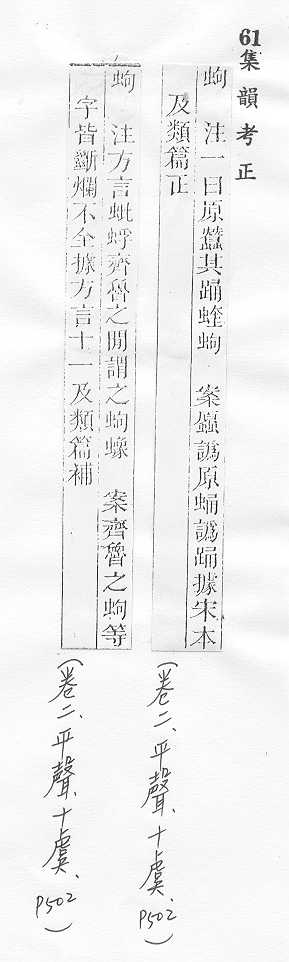 61
集韻考正
蚼　注一曰原蠶其蛹蝰蚼　案蠶譌原蛹譌踊據宋本
及類篇正
(卷二、平聲、十虞、P502)
蚼　注方言蚍蜉齊魯之間謂之蚼蟓　案齊魯之蚼等
字皆斷爛不全據方言十一及類篇補
(卷二、平聲、十虞、P502)